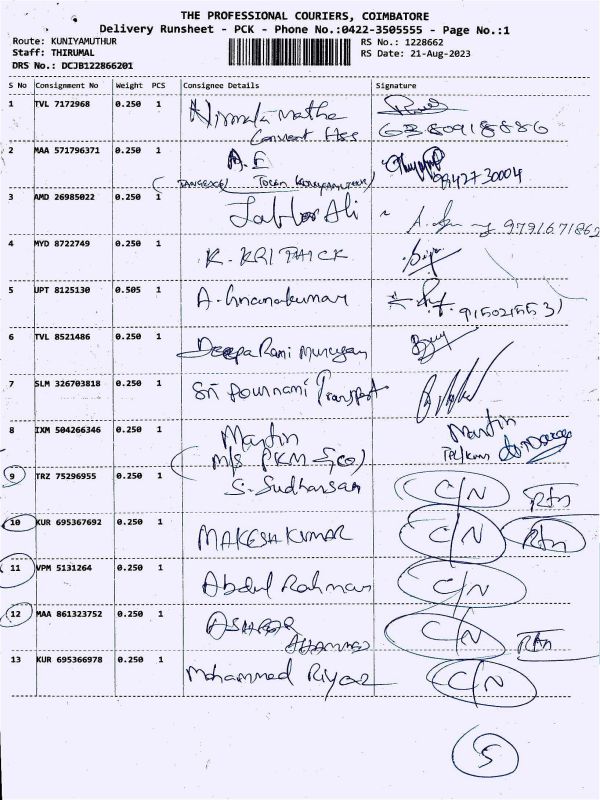 THE PROFESSIONAL COURIERS, COIMBATORE
Delivery Runsheet - PCK - Phone No.:0422-3505555 - Page No.:1
Route: KUNIYAMUTHUR RS No.: 1228662
Staff: THIRUMAL RS Date: 21-Aug-2023
DRS No.: DCJB122866201
S No Consignment No Weight PCS Consignee Details Signature
1 TVL 7172968 0.250 1 Nirmala matha
Convent Hss 6380918886
2 MAA 571796371 0.250 1 A. E
9842730004
3 AMD 26985022 0.250 1 Ali 9791671862
4 MYD 8722749 0.250 1 K. KRITHICK
5 UPT 8125130 0.505 1 A. Gnanakumar
6 TVL 8521486 0.250 1 Deepa Rani Murugan
7 SLM 326703818 0.250 1 Sri Pournami Transport
8 IXM 504266346 0.250 1 Martin Martin
M/s PKM & Co)
9 TRZ 75296955 0.250 1 S. Sudharsan C/N Rtn
10 KUR 695367692 0.250 1 MAKESH KUMAR C/N Rtn
11 VPM 5131264 0.250 1 Abdul Rahman C/N
12 MAA 861323752 0.250 1 C/N Rtn
13 KUR 695366978 0.250 1 Mohammed Riyaz C/N
5